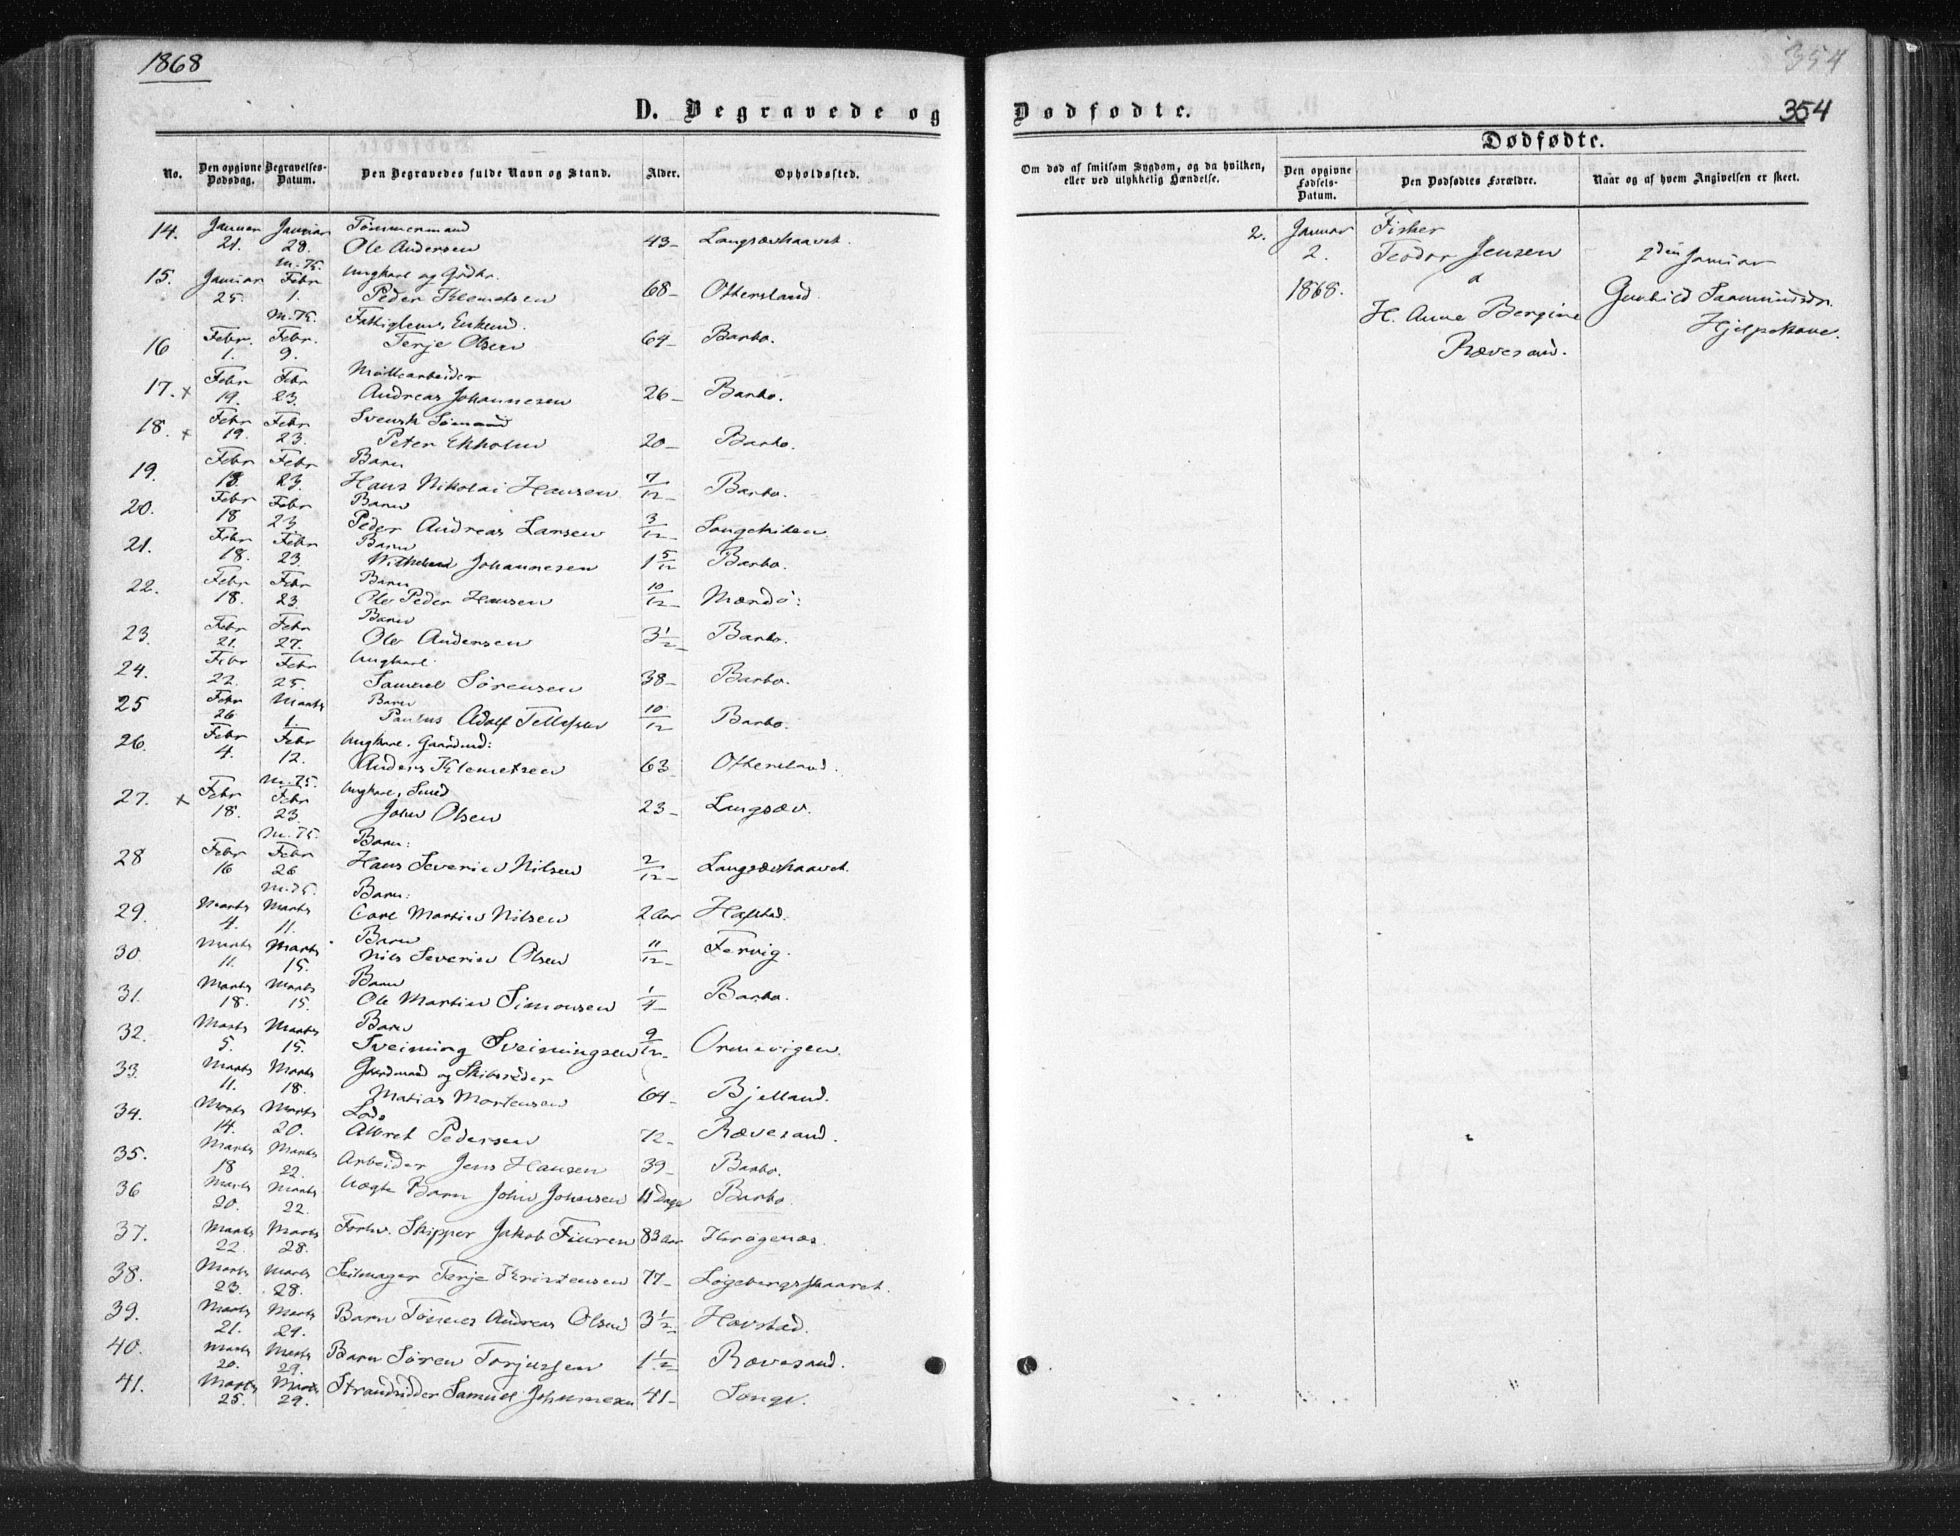 1868
354
354
D. Begravede og Dødfødte.
Dødfødte.
No. Den opgivne Dødsdag. Begravelses-Datum. Den Begravedes fulde Navn og Stand. Alder. Opholdssted.
Om død af smitsom Sygdom, og da hvilken, eller ved ulykkelig Hændelse. Den opgivne Fødsels-Datum. Den Dødfødtes Forældre. Naar og af hvem Angivelsen er skeet.
14. Januar 21. Januar 28. Tømmermand
Ole Andersen 43 Langsævhaavet.
M. 75.
15. Januar 25. Febr 1. Ungkarl og
Peder Klemetsen 68 Oftersland.
M. 75.
16 Febr. 1. Febr. 9. Fattiglem, Enkemd.
Terje Olsen 64 Barbo.
17. x Febr 19. Febr 23. Møllearbeider
Andreas Johannesen 26 Barbo.
18. x Febr 19. Febr 23. Svensk Sømand
Peter Ekholm 20 Barbo.
19. Febr 18. Febr 23. Barn
Hans Nikolai Hansen 7/12 Barbo.
20. Febr 18 Febr 23 Barn
Peder Andreas Larsen 3/12 Songekilen
21. Febr 18. Febr 23. Barn
Wilhelm Johannesen 1 5/12 Barbo.
22. Febr 18. Febr 23. Barn
Ole Peder Hansen 10/12 Mærdö:
23. Febr 21. Febr 27. Barn
Ole Andersen 3½ Barbo.
24. Febr 22. Febr 25. Ungkarl.
Samuel Sørensen 38 Barbo.
25 Febr 26 Marts 1. Barn
Paulus Adolf Tellefsen 10/12 Barbo.
26. Febr 4. Febr 12. Ungkarl, Gaardmd:
Anders Klemetsen 63 Oftersland.
M. 75.
27. x Febr 18. Febr 23. Ungkarl, Smed
John Olsen 23 Langsæv.
M. 75.
28 Febr 16 Febr 26 Barn:
Hans Severin Nilsen 2/12 Langsævhaavet.
M. 75.
29. Marts 4. Marts 11. Barn:
Carl Martin Nilsen 2 Aar Hafstad.
30. Marts 11. Marts 15. Barn
Nils Severin Olsen 11/12 Fervig.
31. Marts 18. Marts 15. Barn
Ole Martin Simonsen 1/4 Barbo.
32. Marts 5. Marts 15. Barn
Sveinung Sveinungsen 9/12 Ormevigen.
33. Marts 11. Marts 18. Gaardmand og Skibsreder
Matias Mortensen 64 Bjelland.
34. Marts 14. Marts 20. Lods
Albret Pedersen 72 Rævesand.
35. Marts 18 Marts 22. Arbeider Jens Hansen 39 Barbo.
36 Marts 20. Marts 22. Uægte Barn John Johnsen 11 Dage Barbo.
37. Marts 22. Marts 28. Forhv. Skipper Jakob Fiuren 83 Aar Krøgenæs.
38. Marts 23. Marts 28. Seilmager Terje Kristensen 77
39. Marts 21. Marts 29. Barn Tönnes Andreas Olsen 3½ Havstad.
40. Marts 20. Marts 29. Barn Sören Torjussen 1½ Rævesand.
41. Marts 25. Marts 29. Strandsidder Samuel Johannesen 41 Songe.
2. Januar 2. 1868. Fisker
Teodor Jensen
H. Anne Bergine
Rævesand.
2den Januar
Gunhild Saamundsdr.
Hjelpekone.